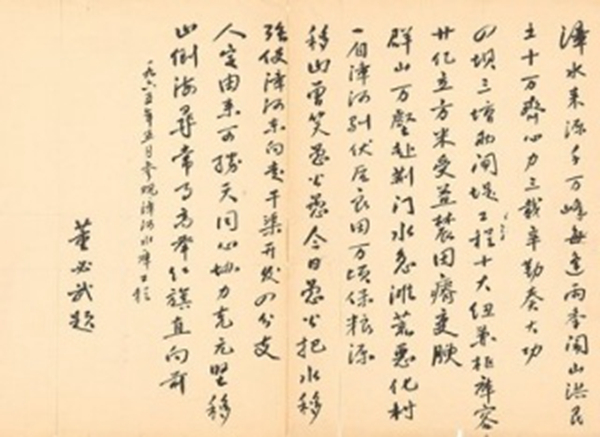 漳水来源千万峰每逢雨季闹山洪民
工十万齐心力三载辛勤奏大功
四坝三墙两闸堤工程十大纽为枢库容
廿亿立方米受益農田瘠变腴
群山万壑赴荆门水急滩荒恶化村
一自漳河驯伏后良田万顷保粮源
移山曾笑愚公愚今日愚公把水移
强使漳河东向走干渠开发四分支
人定由来可胜天同心协力克坚移
山倒海寻常事高举红旗直向前
一九六五年五月参观漳河水库工程
董必武题